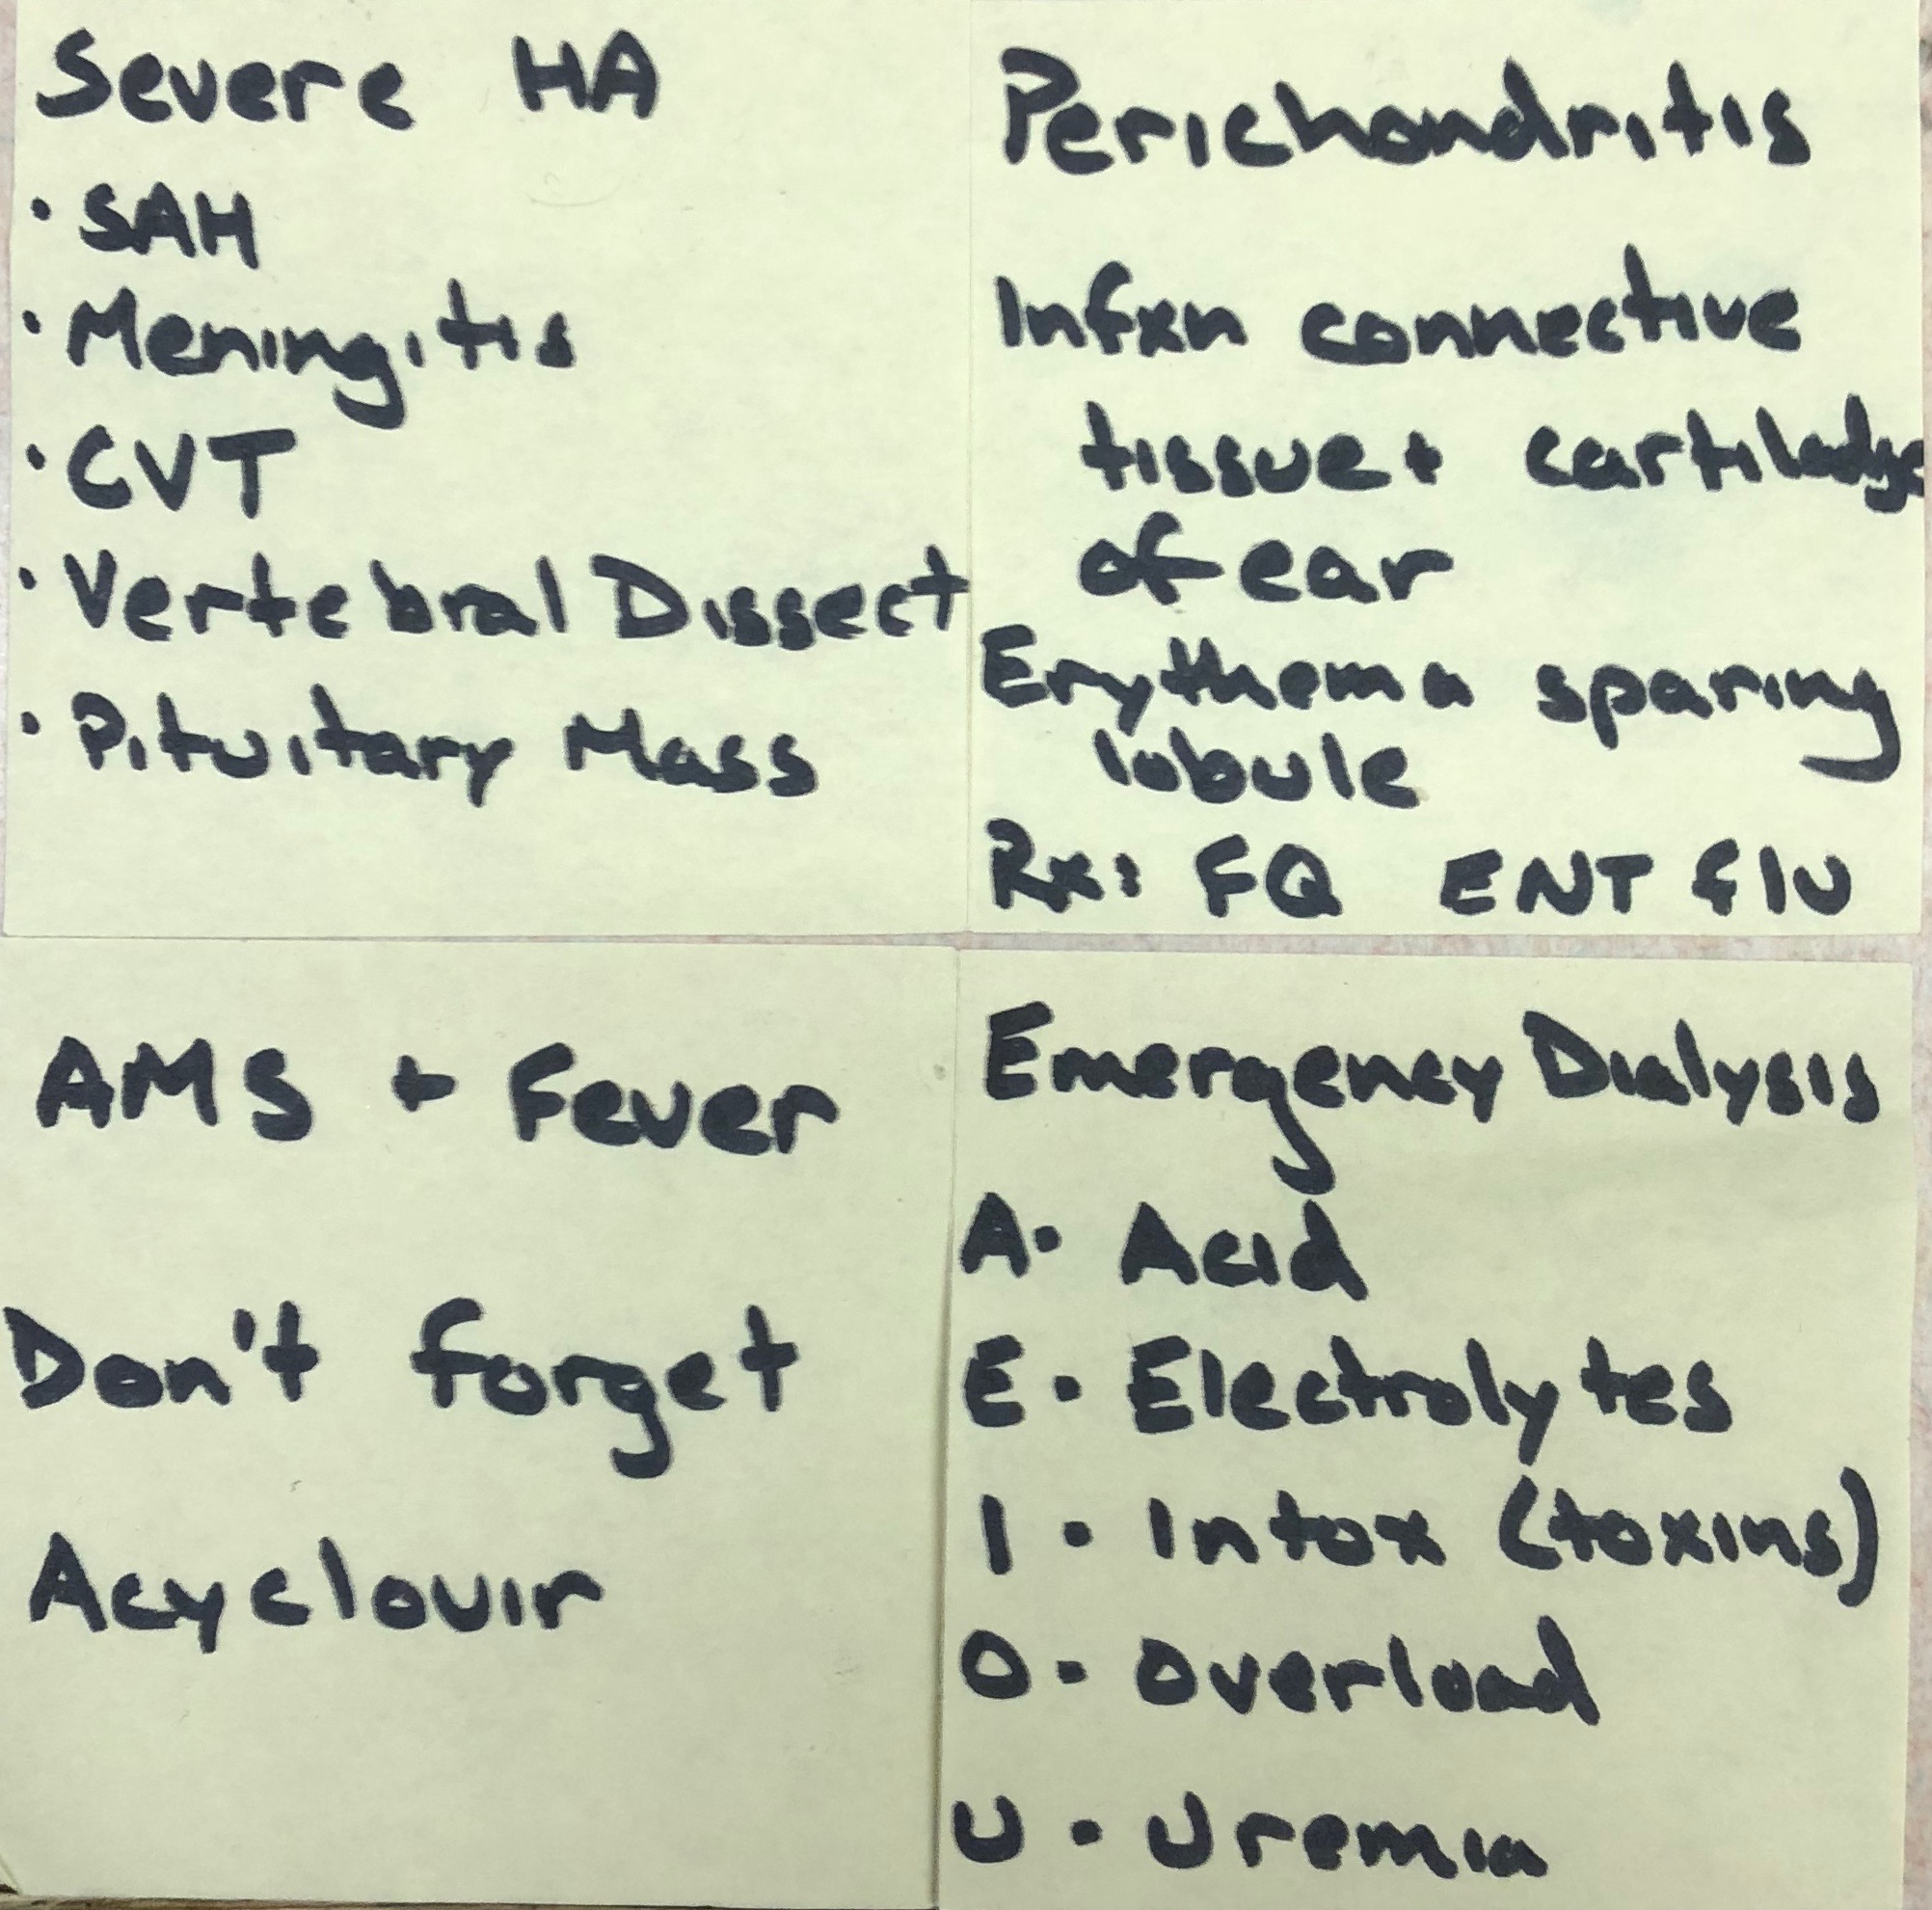 Severe HA
• SAH
• Meningitis
• CVT
• Vertebral Dissect
• Pituitary Mass
Perichondritis
Infxn connective
tissue + cartiladge
of ear
Erythema sparing
lobule
Rx: FQ ENT flu
AMS + Fever
Don't forget
Acyclovir
Emergency Dialysis
A • Acid
E • Electrolytes
I • Intox (toxins)
O • Overload
U • Uremia